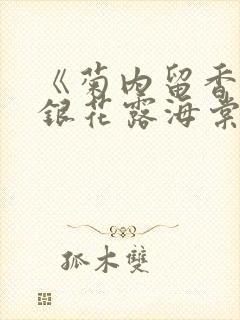 《菊内留香
銀花露海棠
孤木雙